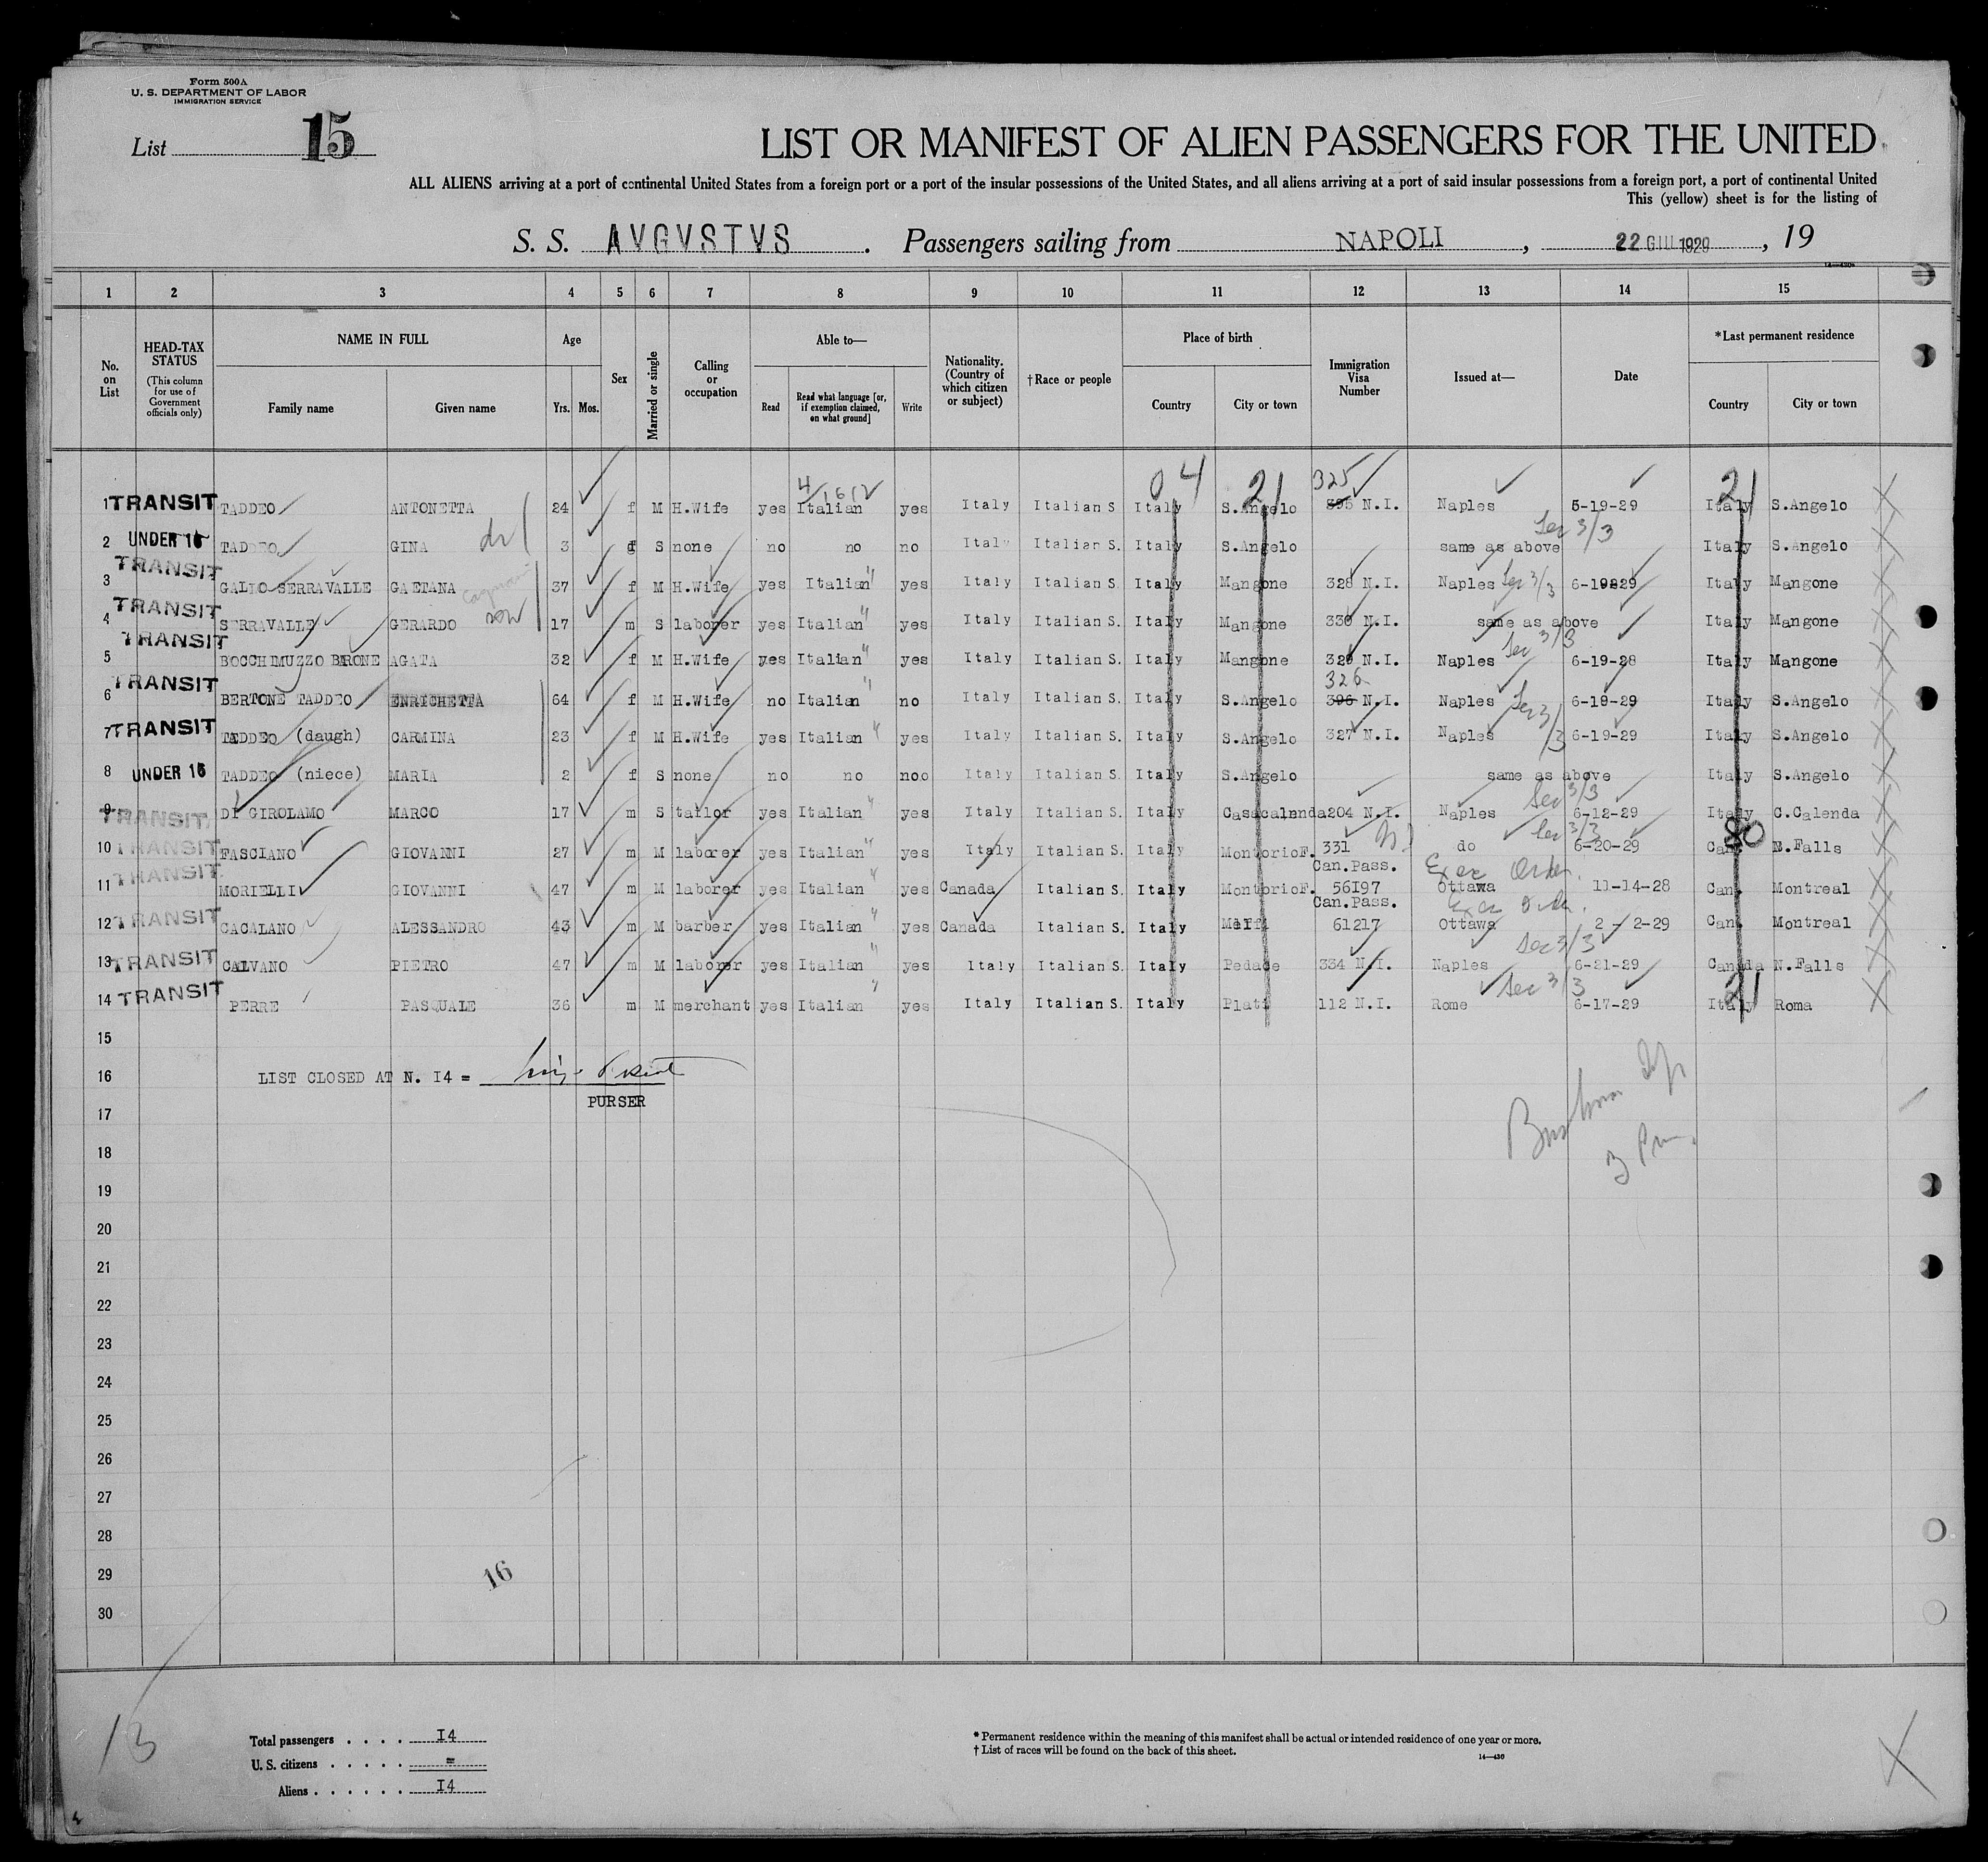 Form 500A
U. S. DEPARTMENT OF LABOR
IMMIGRATION SERVICE
List 15
LIST OR MANIFEST OF ALIEN PASSENGERS FOR THE UNITED
ALL ALIENS arriving at a port of continental United States from a foreign port or a port of the insular possessions of the United States, and all aliens arriving at a port of said insular possessions from a foreign port, a port of continental United
This (yellow) sheet is for the listing of
S. S. AVGVSTVS. Passengers sailing from NAPOLI, 22 GIU 1929, 19
1 2 3 4 5 6 7 8 9 10 11 12 13 14 15
No. on List
HEAD-TAX STATUS
(This column for use of Government officials only)
NAME IN FULL
Family name Given name
Age
Yrs. Mos.
Sex
Married or single
Calling or occupation
Able to—
Read Read what language [or, if exemption claimed, on what ground] Write
Nationality. (Country of which citizen or subject)
†Race or people
Place of birth
Country City or town
Immigration Visa Number
Issued at—
Date
*Last permanent residence
Country City or town
04 21 325 21
1 TRANSIT TADDEO ANTONETTA 24 f M H.Wife yes Italian yes Italy Italian S Italy S.Angelo 395 N.I. Naples 5-19-29 Italy S.Angelo
Sec 3/3
2 UNDER 16 TADDEO GINA 3 f S none no no no Italy Italian S. Italy S.Angelo same as above Italy S.Angelo
3 TRANSIT GALLO SERRAVALLE GAETANA 37 f M H.Wife yes Italian yes Italy Italian S. Italy Mangone 328 N.I. Naples Sec 3/3 6-19829 Italy Mangone
4 TRANSIT SERRAVALLE GERARDO son 17 m S laborer yes Italian yes Italy Italian S. Italy Mangone 330 N.I. same as above Italy Mangone
Sec 3/3
5 TRANSIT BOCCHIMUZZO BRONE AGATA 32 f M H.Wife yes Italian yes Italy Italian S. Italy Mangone 329 N.I. Naples 6-19-28 Italy Mangone
326
6 TRANSIT BERTONE TADDEO ENRICHETTA 64 f M H.Wife no Italian no Italy Italian S. Italy S.Angelo 396 N.I. Naples Sec 3/3 6-19-29 Italy S.Angelo
7 TRANSIT TADDEO (daugh) CARMINA 23 f M H.Wife yes Italian yes Italy Italian S. Italy S.Angelo 327 N.I. Naples 6-19-29 Italy S.Angelo
8 UNDER 16 TADDEO (niece) MARIA 2 f S none no no noo Italy Italian S. Italy S.Angelo same as above Italy S.Angelo
Sec 3/3
9 TRANSIT DI GIROLAMO MARCO 17 m S tailor yes Italian yes Italy Italian S. Italy Casacalenda 204 N.I. Naples 6-12-29 Italy C.Calenda
Sec 3/3 80
10 TRANSIT FASCIANO GIOVANNI 27 m M laborer yes Italian yes Italy Italian S. Italy MontorioF. 331 N.I. do 6-20-29 Can. N.Falls
Can.Pass. Exec Order.
11 TRANSIT MORIELLI GIOVANNI 47 m M laborer yes Italian yes Canada Italian S. Italy MontorioF. 56197 Ottawa 11-14-28 Can. Montreal
Can.Pass. Exec Order.
12 TRANSIT CACALANO ALESSANDRO 43 m M barber yes Italian yes Canada Italian S. Italy Melfi 61217 Ottawa 2 - 2-29 Can. Montreal
Sec 3/3
13 TRANSIT CALVANO PIETRO 47 m M laborer yes Italian yes Italy Italian S. Italy Pedace 334 N.I. Naples 6-21-29 Canada N.Falls
Sec 3/3 21
14 TRANSIT PERRE PASQUALE 36 m M merchant yes Italian yes Italy Italian S. Italy Plati 112 N.I. Rome 6-17-29 Italy Roma
15
16 LIST CLOSED AT N. I4 =
PURSER
17
18
3 Pm.
19
20
21
22
23
24
25
26
27
28
29
16
30
13
Total passengers . . . . I4
U. S. citizens . . . . . =
Aliens . . . . . . I4
* Permanent residence within the meaning of this manifest shall be actual or intended residence of one year or more.
† List of races will be found on the back of this sheet.
14—430